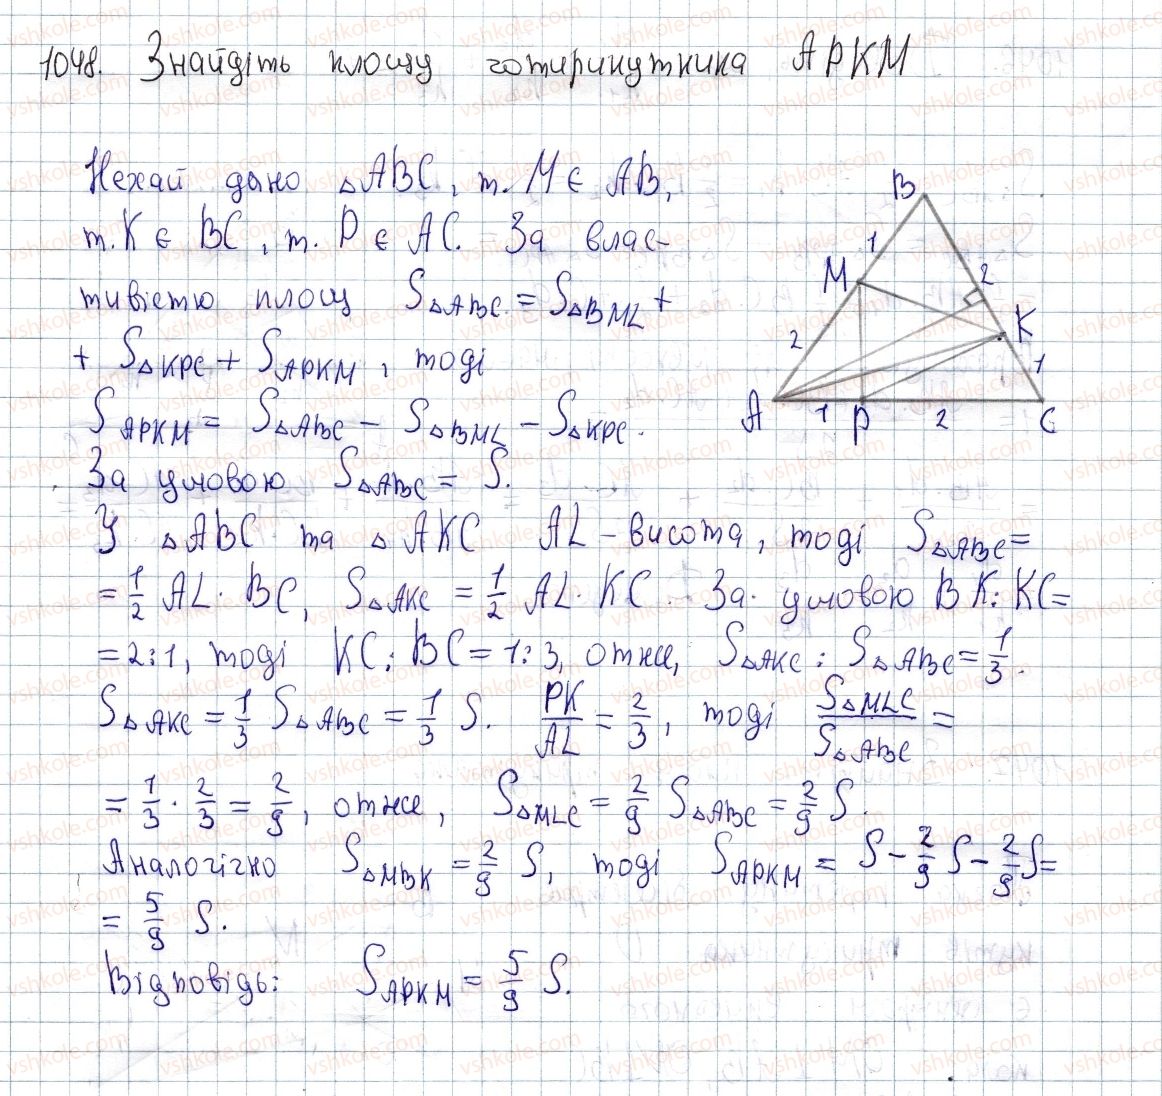 1048. Знайдіть площу чотирикутника APKM
Нехай дано △ABC, т. M ∈ AB,
т. K ∈ BC, т. P ∈ AC. За влас-
тивістю площ S△ABC = S△BML +
+ S△KPC + S APKM, тоді
S APKM = S△ABC − S△BML − S△KPC.
За умовою S△ABC = S.
У △ABC та △AKC AL – висота, тоді S△ABC =
= 1/2 AL · BC, S△AKC = 1/2 AL · KC. За умовою BK : KC =
= 2:1, тоді KC : BC = 1:3, отже, S△AKC : S△ABC = 1/3.
S△AKC = 1/3 S△ABC = 1/3 S. PK/AL = 2/3, тоді S△MLC/S△ABC =
= 1/3 · 2/3 = 2/9, отже, S△MLC = 2/9 S△ABC = 2/9 S.
Аналогічно S△MBK = 2/9 S, тоді S APKM = S − 2/9 S − 2/9 S =
= 5/9 S.
Відповідь: S APKM = 5/9 S.
B
1
M
2
2
K
1
A
1
P
2
C
vshkole.com